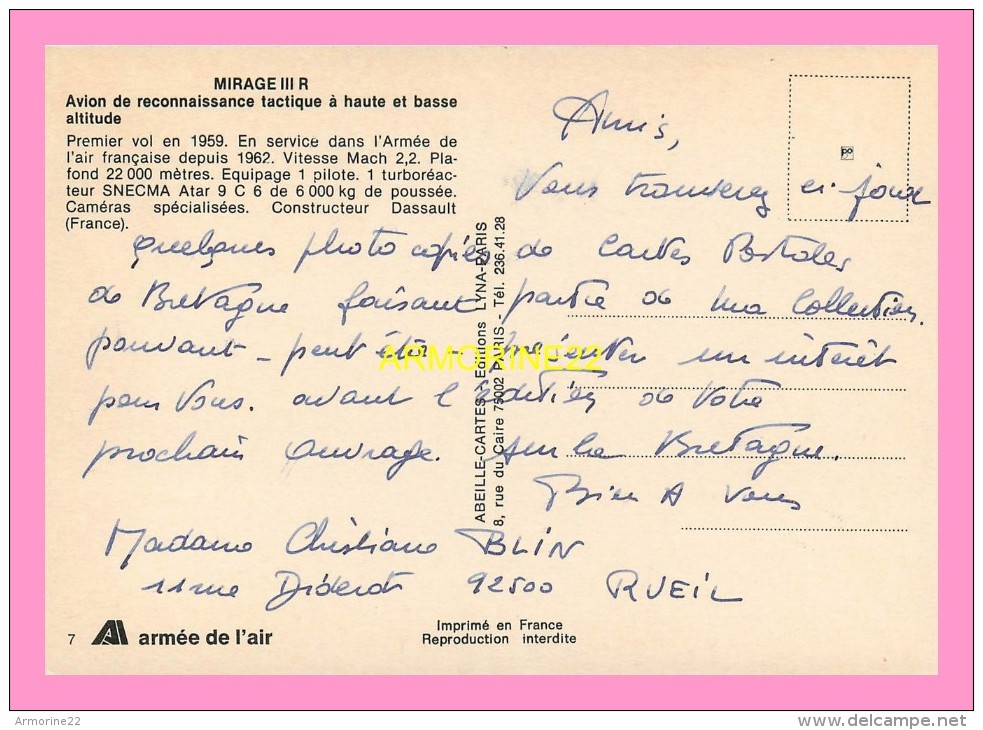 MIRAGE III R
Avion de reconnaissance tactique à haute et basse
altitude
Premier vol en 1959. En service dans l'Armée de
l'air française depuis 1962. Vitesse Mach 2,2. Pla-
fond 22 000 mètres. Equipage 1 pilote. 1 turboréac-
teur SNECMA Atar 9 C 6 de 6 000 kg de poussée.
Caméras spécialisées. Constructeur Dassault
(France).
Amis,
Vous trouverez ci-joint
quelques photocopies de Cartes Postales
de Bretagne faisant partie de ma Collection.
pouvant - peut être - présenter un intérêt
pour Vous. avant l'édition de Votre
prochain ouvrage. sur la Bretagne.
Bien A Vous
Madame Christiane BLIN
11 rue Diderot 92500 RUEIL
ABEILLE-CARTES Editions LYNA-PARIS
8, rue du Caire 75002 PARIS - Tél. 236.41.28
ARMORINE22
7 armée de l'air
Imprimé en France
Reproduction interdite
Armorine22
www.delcampe.net